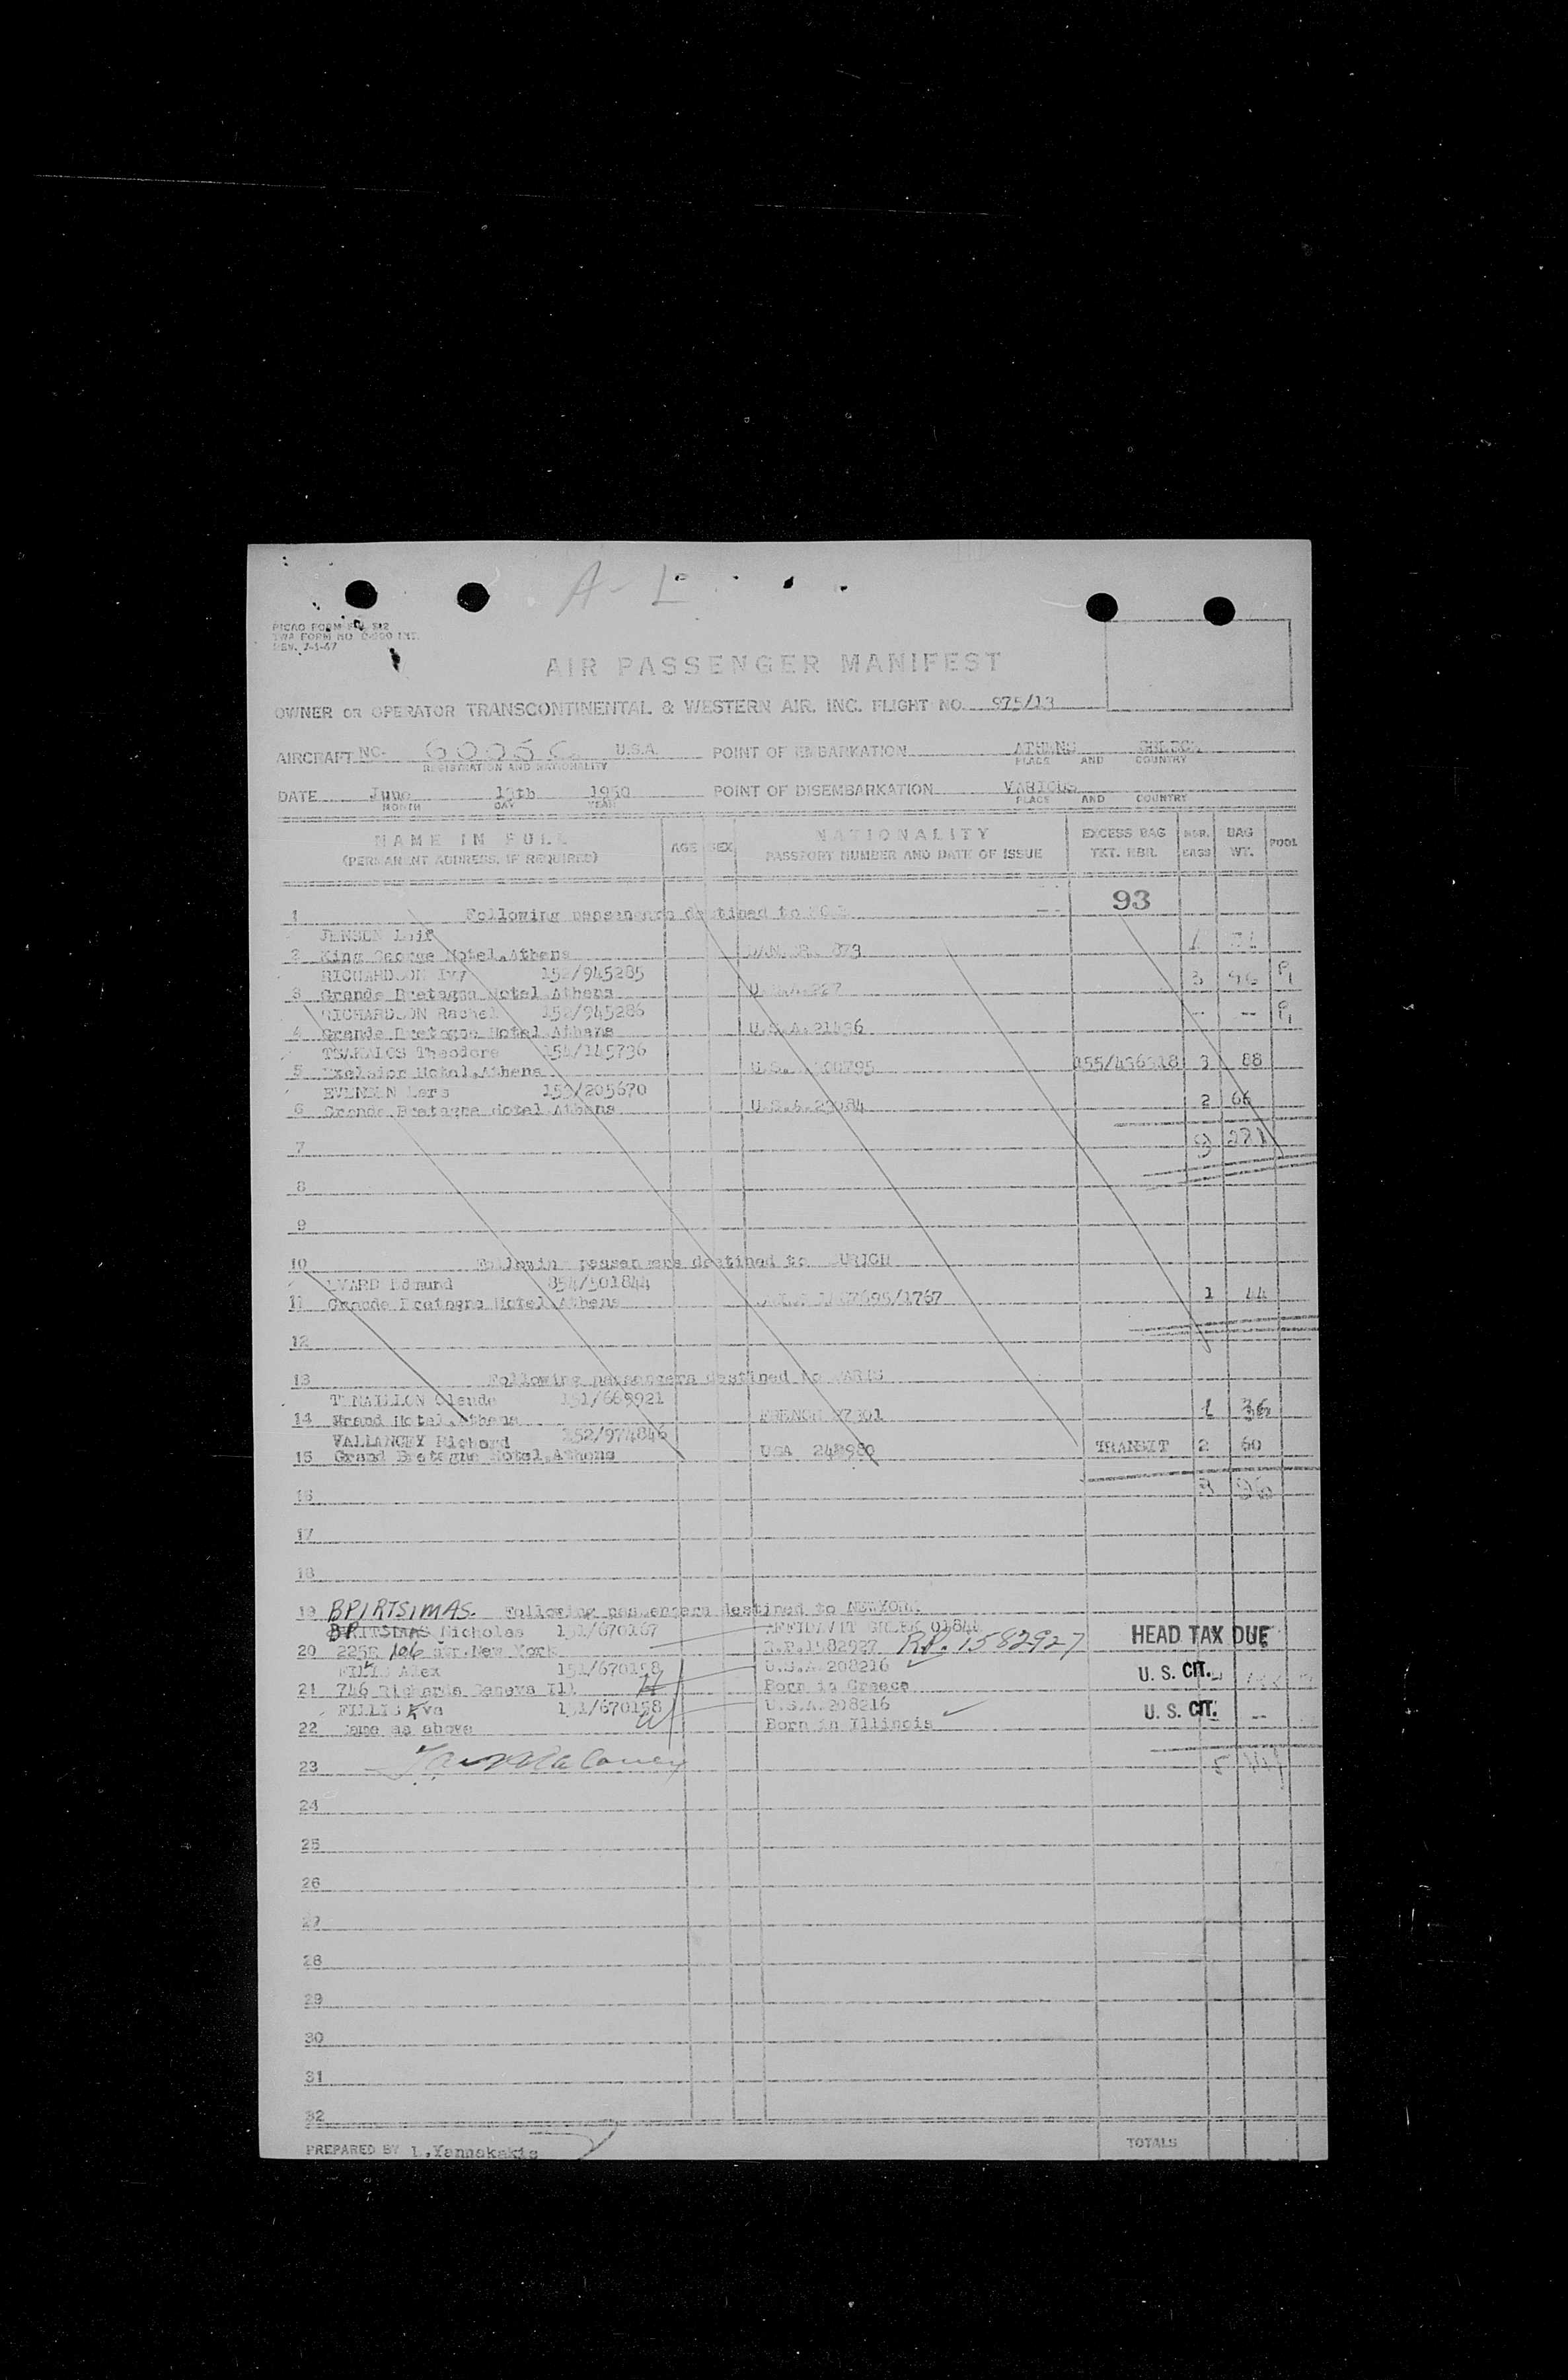 A-L
PICAO FORM
TWA FORM NO INT.
REV. 7-1-47
AIR PASSENGER MANIFEST
OWNER OR OPERATOR TRANSCONTINENTAL & WESTERN AIR. INC. FLIGHT NO. 975/13
AIRCRAFT NO. 6005C U.S.A. POINT OF EMBARKATION ATHENS
REGISTRATION AND NATIONALITY PLACE AND COUNTRY
DATE June 13th 1950 POINT OF DISEMBARKATION VARIOUS
MONTH DAY YEAR PLACE AND COUNTRY
NAME IN FULL AGE SEX NATIONALITY EXCESS BAG NBR. BAG POOL
(PERMANENT ADDRESS, IF REQUIRED) PASSPORT NUMBER AND DATE OF ISSUE TKT. NBR. BAGS WT.
93
1 Following passengers destined to
JENSEN Leif
2 King George Hotel, Athens 879
RICHARDSON Ivy 152/945285 3
3 Grande Bretagne Hotel Athens
RICHARDSON Rachel 152/945286 -- --
4 Grande Bretagne Hotel Athens U.S.A.21436
TSAKALOS Theodore 154/145736
5 Exelsior Hotel, Athens 155/436318 3 88
EVENSEN Lars 153/205670
6 Grande Bretagne Hotel Athens U.S.A.23084 2 66
7 9 271
8
9
10 Following passengers destined to ZURICH
Edmund 854/501844
11 Grande Bretagne Hotel Athens 1 44
12
13 Following passengers destined to PARIS
Claude 151/669921
14 Grand Hotel, Athens FRENCH 1 36
VALLANCEY Richard 152/974846
15 Grand Bretagne Hotel, Athens USA 248980 TRANSIT 2 60
16 3 96
17
18
19 BPIRTSIMAS. Following passengers destined to NEWYORK
Nicholas 151/670167 AFFIDAVIT GREEK 01844
20 225E 106 Str.New York R.P.1582927 R.P. 1582927 HEAD TAX DUE
Alex 151/670158 U.S.A.208216
21 746 Richards Geneva Ill Born in Greece U. S. CIT.
FILLIS Eva 151/670158 U.S.A.208216
22 Same as above Born in Illinois U. S. CIT. --
23
24
25
26
27
28
29
30
31
32
PREPARED BY L.Yannakakis TOTALS